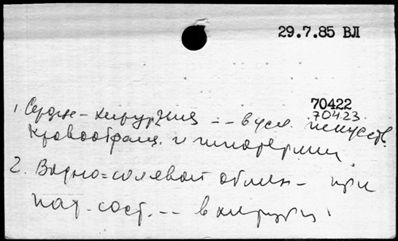 29.7.85 ВЛ
70422
70423
1. Сердце - хирургия -- в усл. искусств.
кровообращ. и гипотермии
2. Водно-солевой обмен - при
пат. сост. -- в хирурги